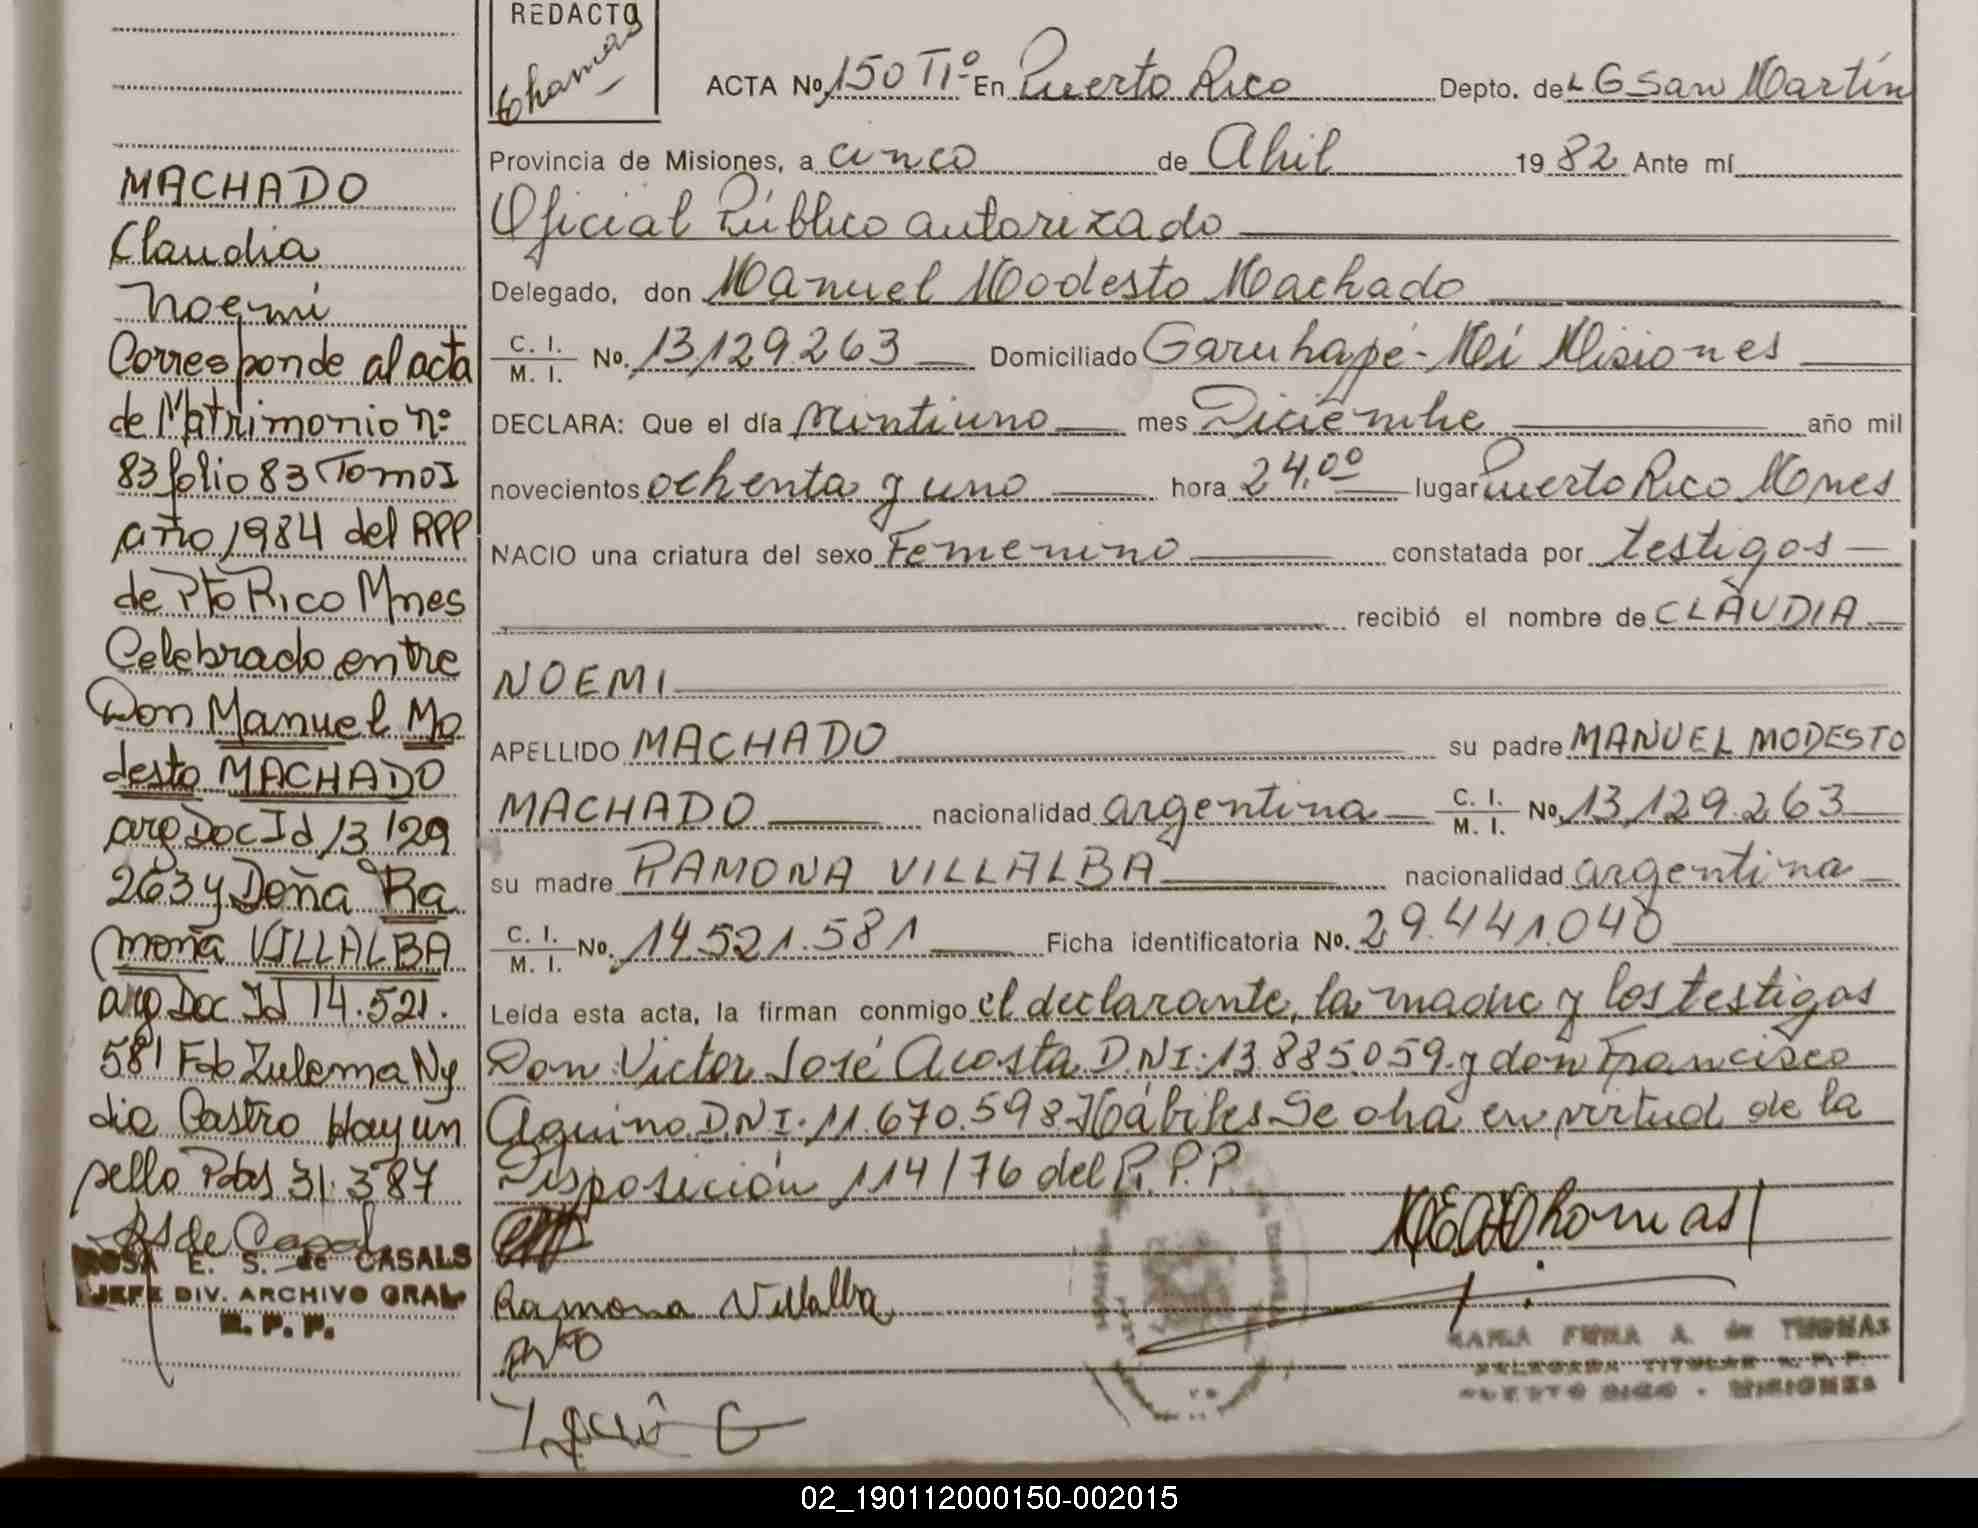 REDACTO
Thomas
ACTA No. 150 TIº En Puerto Rico Depto. de L G San Martín
Provincia de Misiones, a cinco de Abril 1982 Ante mí
Oficial Público autorizado
Delegado, don Manuel Modesto Machado
C. I. / M. I. No. 13.129.263 Domiciliado Garuhapé-Mí Misiones
DECLARA: Que el día veintiuno mes Diciembre año mil
novecientos ochenta y uno hora 24,00 lugar Puerto Rico Mnes
NACIO una criatura del sexo Femenino constatada por testigos
recibió el nombre de CLAUDIA
NOEMI
APELLIDO MACHADO su padre MANUEL MODESTO
MACHADO nacionalidad argentina C. I. / M. I. No. 13.129.263
su madre RAMONA VILLALBA nacionalidad argentina
C. I. / M. I. No. 14.521.581 Ficha identificatoria No. 29.441.040
Leída esta acta, la firman conmigo el declarante, la madre y los testigos
Don Victor José Acosta D.N.I. 13.885.059 y don Francisco
Aquino D.N.I. 11.670.598 Hábiles Se labra en virtud de la
Disposición 114/76 del R.P.P.
Ramona Villalba
MACHADO
Claudia
Noemi
Corresponde al acta
de Matrimonio nº
83 folio 83 Tomo I
año 1984 del RPP
de Pto Rico Mnes
Celebrado entre
Don Manuel Mo
desto MACHADO
arg Doc Id 13 129
263 y Doña Ra
mona VILLALBA
arg Doc Id 14.521.
581 Fdo Zulema Ny
dia Castro Hay un
sello Pdas 31.3.87
ROSA E. S. de CASALS
JEFE DIV. ARCHIVO GRAL
R. P. P.
A. de THOMAS
DELEGADA TITULAR R. P. P.
PUERTO RICO - MISIONES
02_190112000150-002015